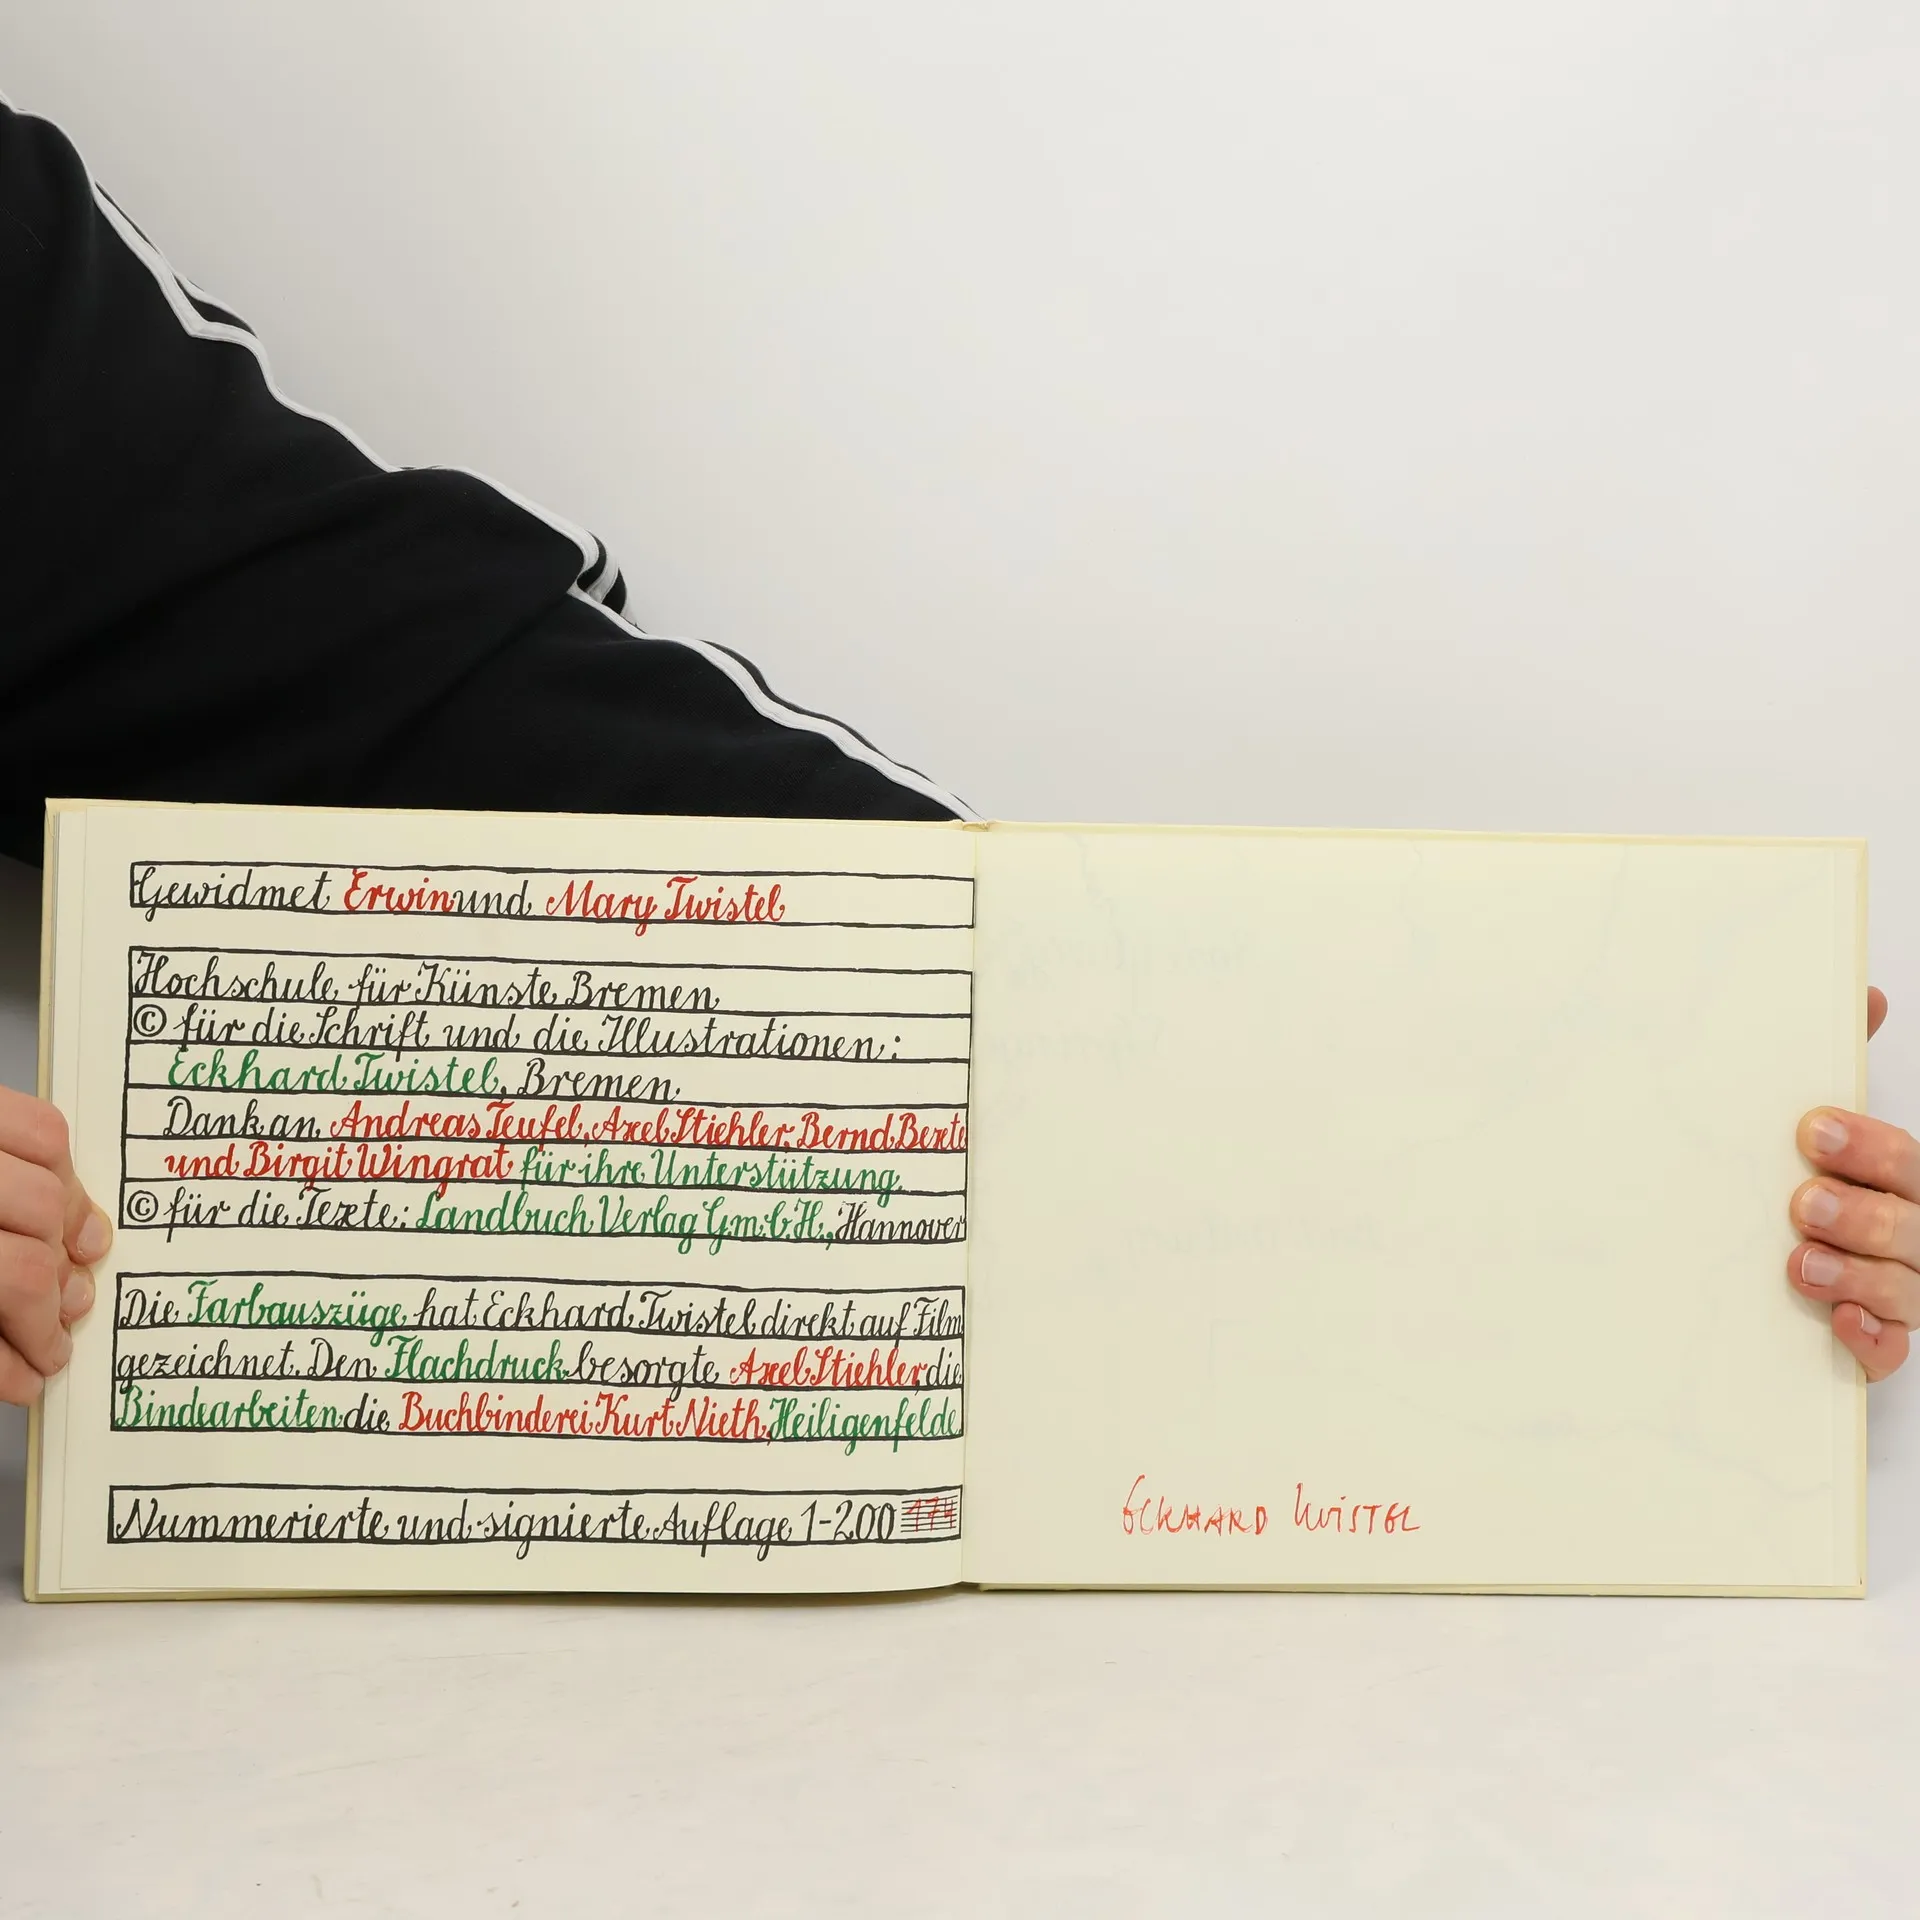 Gewidmet Erwin und Mary Twistel
Hochschule für Künste Bremen
© für die Schrift und die Illustrationen:
Eckhard Twistel, Bremen.
Dank an Andreas Teufel, Axel Stiehler, Bernd Bexte
und Birgit Wingrat für ihre Unterstützung.
© für die Texte: Landbuch Verlag G.m.b.H., Hannover
Die Farbauszüge hat Eckhard Twistel direkt auf Film
gezeichnet. Den Flachdruck besorgte Axel Stiehler, die
Bindearbeiten die Buchbinderei Kurt Nieth, Heiligenfelde.
Nummerierte und signierte Auflage 1-200 174
ECKHARD TWISTEL